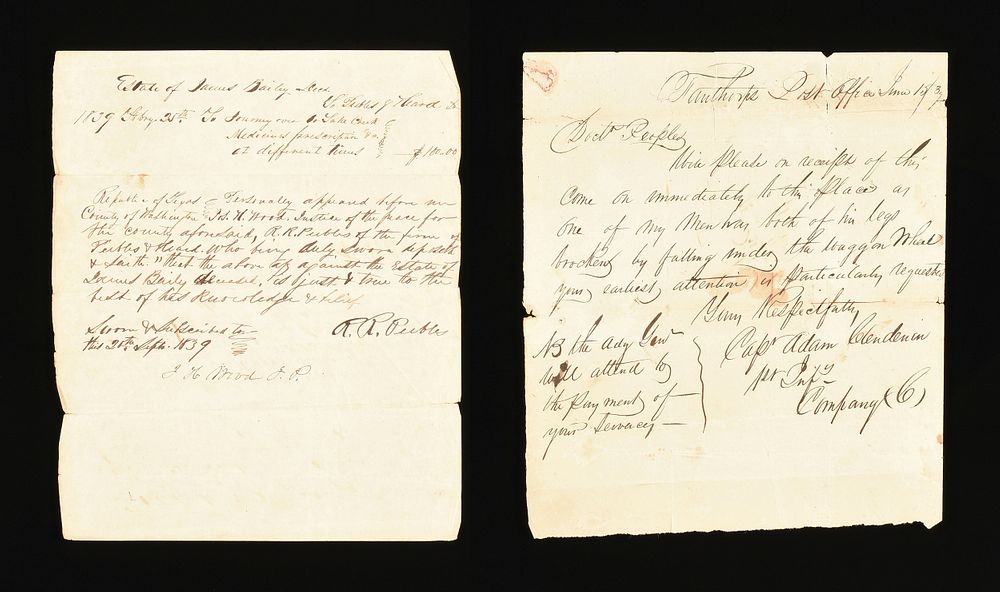 Estate of James Baily Decd
To Peebles & Heard Dr
1839 Feby. 25th To Journey over to Lake Creek
Medicines prescription &c
at different times $100.00
Republic of Texas Personaley appeared before me
County of Washington Jas. H. Wood. Justice of the peace for
the county aforesaid, R. R. Peebles of the firm of
Peebles & Heard Who being duly sworn deposeth
& saith "that the above a/c against the Estate of
James Baily deceased, is just & true to the
best of his knowledge & belief
Sworn & subscribed to
this 28th Sept. 1839
R. R. Peebles
J H Wood J. P.
Fanthorps Post Office June 1st 39
Doctr. Peebles
Will please on receipt of this
come on immediately to this place as
one of my Men was both of his legs
brocken by falling under the waggon Wheel
your earliest attention is particularly requested
Yours Respectfully
Capt Adam Clendenin
1st Infy
Company (C)
NB the Adj Genl
will attend to
the payment of
your services